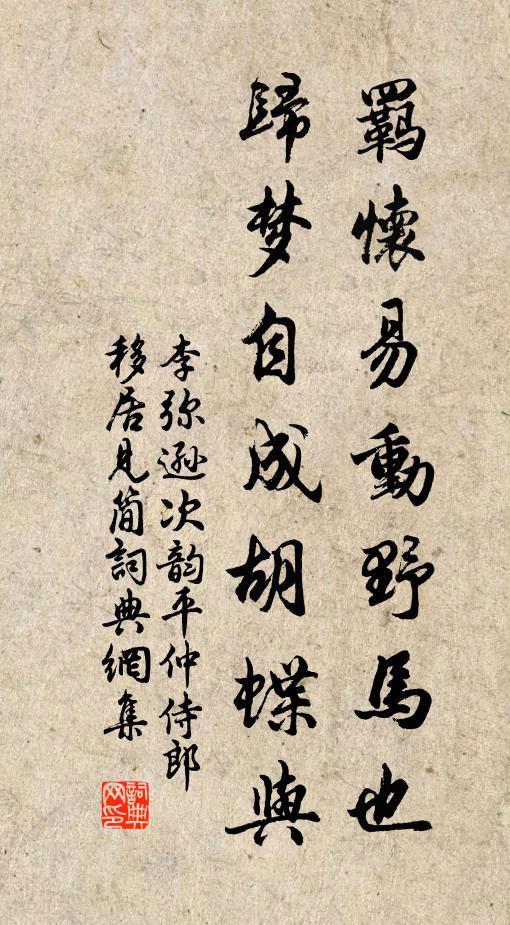 羈懷易動野馬也
歸梦自成胡蝶與
李弥遜次韵平仲侍郎
移居見簡詞典網集
詞典
网印